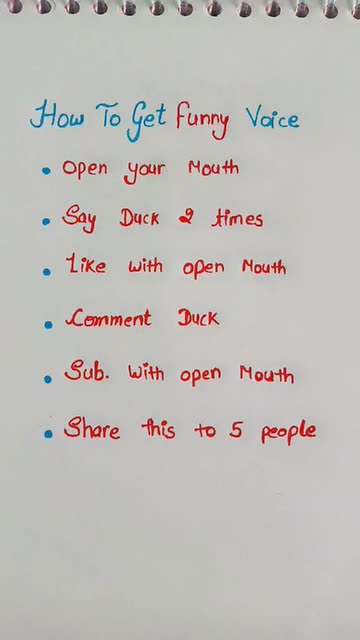 How To Get Funny Voice
• Open your Mouth
• Say Duck 2 times
• Like with open Mouth
• Comment Duck
• Sub. With open Mouth
• Share this to 5 people